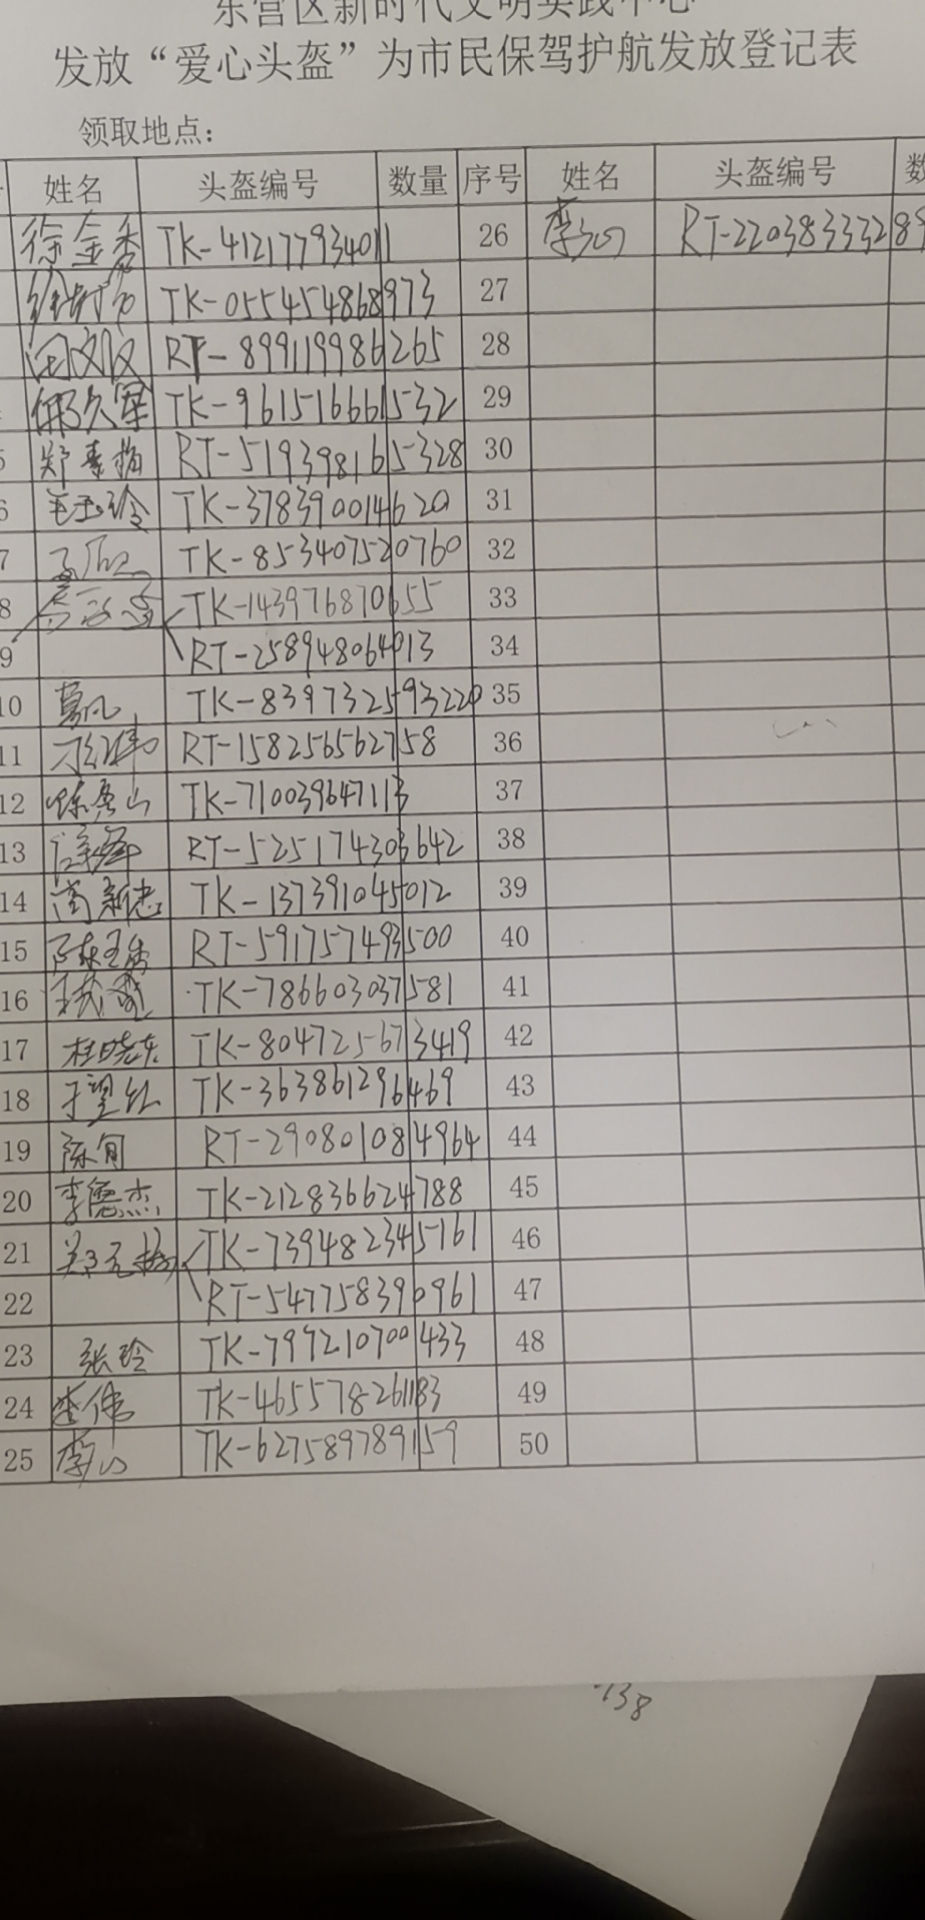 东营区新时代文明实践中心
发放“爱心头盔”为市民保驾护航发放登记表
领取地点：
姓名 头盔编号 数量 序号 姓名 头盔编号 数
徐金秀 TK-412177934011 26 李 RT-22038333289
TK-055454868973 27
RT-899119986265 28
TK-961516661532 29
5 郑素梅 RT-519398165328 30
6 毛玉玲 TK-378390014620 31
7 TK-853407520760 32
8 TK-143976870655 33
9 RT-258948064013 34
10 TK-839732593220 35
11 RT-158256562758 36
12 TK-710039647113 37
13 RT-525174303642 38
14 尚新忠 TK-137391045012 39
15 陈玉秀 RT-591757493500 40
16 TK-786603037581 41
17 杜晓东 TK-804725673419 42
18 于望红 TK-363861296469 43
19 陈旬 RT-290801084964 44
20 李德杰 TK-212836624788 45
21 TK-739482345161 46
22 RT-547758390961 47
23 张玲 TK-797210700433 48
24 李伟 TK-465578261183 49
25 李 TK-627589789159 50
738